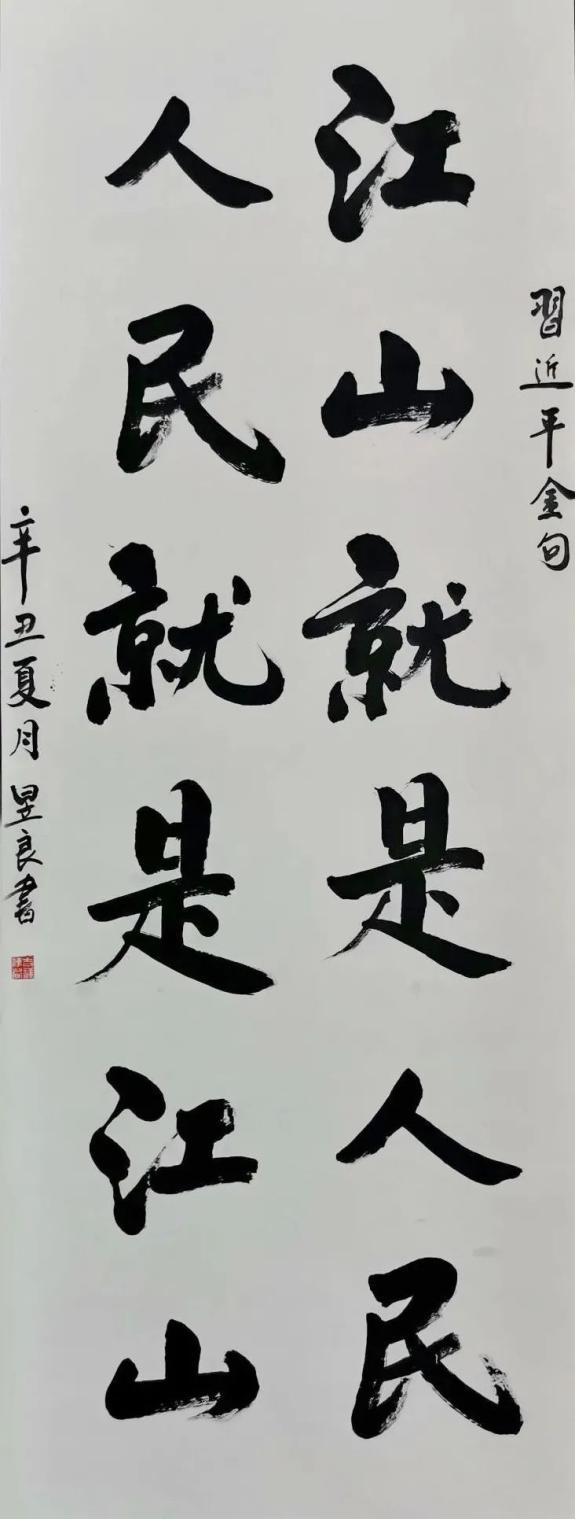 習近平金句
江山就是人民
人民就是江山
辛丑夏月昱良書